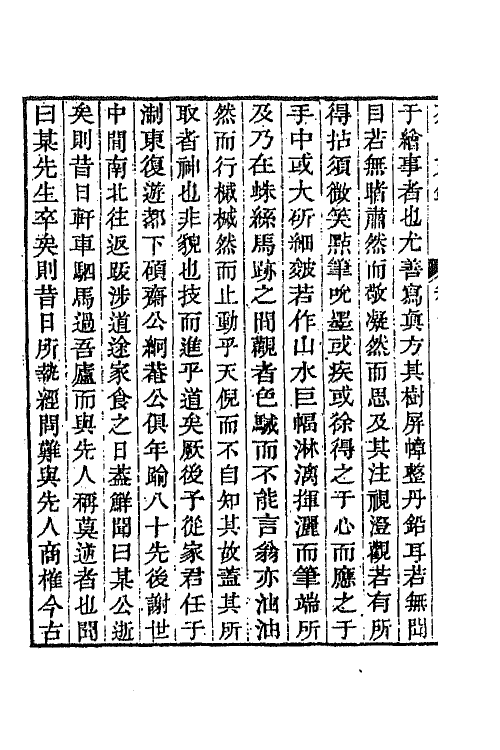 于繪事者也尤善寫真方其樹屏幛整丹鉛耳若無聞
目若無睹肅然而敬凝然而思及其注視澄觀若有所
得拈須微笑點筆吮墨或疾或徐得之于心而應之于
手中或大斫細皴若作山水巨幅淋漓揮灑而筆端所
及乃在蛛絲馬跡之間觀者色駴而不能言翁亦油油
然而行棫棫然而止動乎天倪而不自知其故蓋其所
取者神也非貌也技而進乎道矣厥後予從家君任于
淛東復遊都下碩齋公絅菴公俱年踰八十先後謝世
中間南北往返䟦涉道途家食之日葢鮮聞曰某公逝
矣則昔日軒車駟馬過吾廬而與先人稱莫逆者也聞
曰某先生卒矣則昔日所執經問難與先人商榷今古